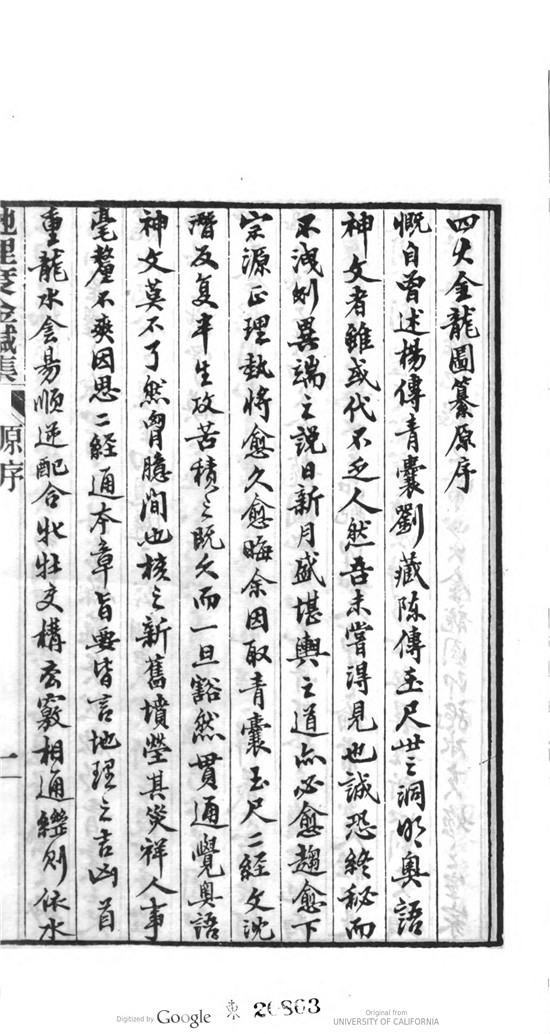 四大金龍圖纂原序
慨自曾述楊傳青囊劉藏陳傳玉尺世之洞明奧語
神文者雖或代不乏人然吾未嘗得見也誠恐終秘而
不洩則異端之說日新月盛堪輿之道亦必愈趨愈下
宗源正理執將愈久愈晦余因取青囊玉尺二經文沈
潛反复半生攻苦積之既久而一旦豁然貫通覺奧語
神文莫不了然胷臆間也核之新舊墳塋其災祥人事
毫釐不爽因思二經通本章旨要皆言地理之吉凶首
重龍水侌昜順逆配合牝牡交構玄竅相通繼則依水
原序
一
Digitized by Google
東 26863
Original from
UNIVERSITY OF CALIFORNIA